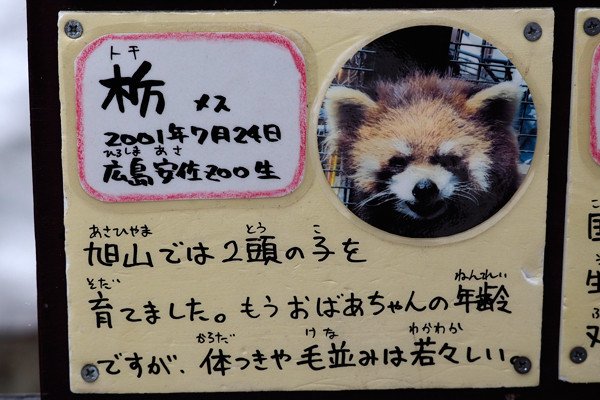 トチ
栃 メス
2001年7月24日
ひろしま あさ
広島安佐ZOO生
あさひやま とう こ
旭山では2頭の子を
そだ ねんれい
育てました。もうおばあちゃんの年齢
からだ けな わかわか
ですが、体つきや毛並みは若々しい。